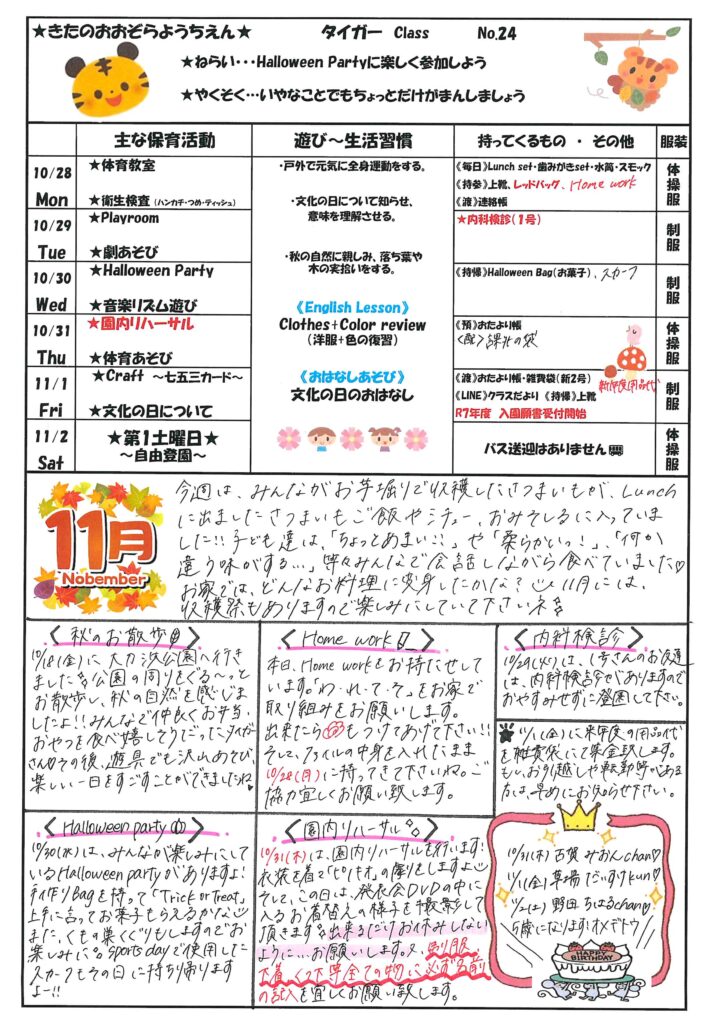 ★きたのおおぞらようちえん★ タイガー Class No.24
★ねらい・・・Halloween Partyに楽しく参加しよう
★やくそく…いやなことでもちょっとだけがまんしましょう
主な保育活動 遊び～生活習慣 持ってくるもの ・ その他 服装
10/28 Mon
★体育教室
★衛生検査(ハンカチ・つめ・ティッシュ)
10/29 Tue
★Playroom
★劇あそび
10/30 Wed
★Halloween Party
★音楽リズム遊び
10/31 Thu
★園内リハーサル
★体育あそび
11/1 Fri
★Craft ～七五三カード～
★文化の日について
11/2 Sat
★第1土曜日★
～自由登園～
・戸外で元気に全身運動をする。
・文化の日について知らせ、
意味を理解させる。
・秋の自然に親しみ、落ち葉や
木の実拾いをする。
《English Lesson》
Clothes+Color review
(洋服+色の復習)
《おはなしあそび》
文化の日のおはなし
《毎日》Lunch set・歯みがきset・水筒・スモック
《持参》上靴、レッドバッグ、Home work
《渡》連絡帳
体操服
★内科検診(1号)
制服
《持帰》Halloween Bag(お菓子)、スカーフ
制服
《預》おたより帳
<配>課外の袋
体操服
新年度用品代
《渡》おたより帳・雑費袋(新2号)
《LINE》クラスだより 《持帰》上靴
R7年度 入園願書受付開始
制服
バス送迎はありません
体操服
11月
Nobember
今週は、みんながお芋堀りで収穫したさつまいもが、Lunch
に出ましたさつまいもご飯やシチュー、おみそしるに入っていま
した!!子ども達は、「ちょっとあまい!!」や「柔らかいっ!」、「何か
違う味がする…」等々みんなで会話しながら食べていました♡
お家では、どんなお料理に変身したかな?11月には、
収穫祭もありますので楽しみにしていて下さいネ
<秋のお散歩>
10/18(金)に大力沢公園へ行き
ました公園の周りをぐる～っと
お散歩し、秋の自然を感じま
したよ!!みんなで仲良くお弁当、
おやつを食べ嬉しそうだったタイガー
さんその後、遊具でも沢山あそび、
楽しい一日をすごすことができましたね
<Home work>
本日、Home workをお持たせして
います。「わ・れ・て・そ」をお家で
取り組みをお願いします。
出来たらもつけてあげて下さい!!
そして、ファイルの中身を入れたまま
10/28(月)に持ってきて下さいね。ご
協力宜しくお願い致します。
<内科検診>
10/29(火)は、1号さんのお友達
は、内科検診がありますので
おやすみせずに登園して下さい。
★11/1(金)に来年度の用品代
を雑費袋にて集金致します。
もし、お引越しや転勤等がある
方は、早めにお知らせ下さい。
<Halloween party>
10/30(水)は、みんなが楽しみにして
いるHalloween partyがありますよ!
手作りBagを持って「Trick or Treat」
上手に言ってお菓子もらえるかな
また、くもの巣くぐりもしますのでお
楽しみに。sports dayで使用した
スカーフもその日に持ち帰ります
よー!!
<園内リハーサル>
10/31(木)は、園内リハーサルを行います!
衣装を着て「ピノキオ」の劇をしますよ
そして、この日は、発表会DVDの中に
入るお着替えの様子を撮影して
頂きます出来るだけお休みしない
ように…お願いします。又、制服、
下着、くつ下等全ての物に必ず名前
の記入を宜しくお願い致します。
10/31(木) 古賀 みおんchan♡
11/1(金) 草場 だいすけkun♡
11/2(土) 野田 ちはるchan♡
5歳になります!オメデトウ
HAPPY
BIRTHDAY